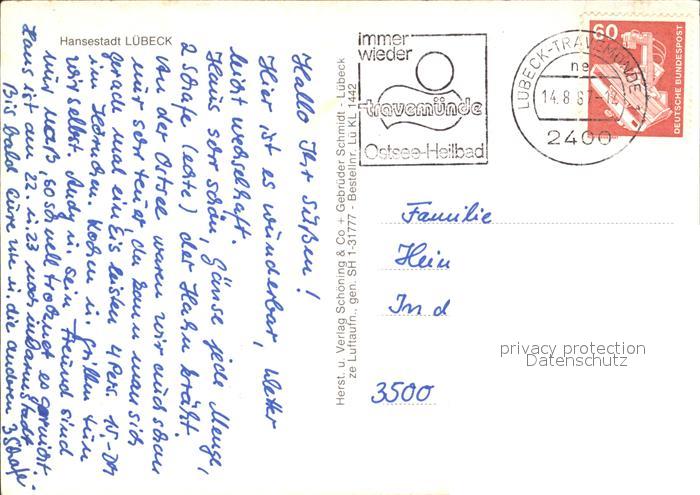 Hansestadt LÜBECK
Hallo Ihr Süßen!
Hier ist es wunderbar, Wetter
leicht wechselhaft.
Haus sehr schön, Gänse jede Menge,
2 Schafe (echte) der Hahn kräht.
Van der Ostsee waren wir auch schon
nur sehr teuer, da kann man sich
gerade mal ein Eis leisten 4 Pers. 15,-DM
im Hörnchen. Kochen u. grillen tun
wir selbst. Andy u. sein Freund sind
nur naß, so schnell trocknet es gar nicht.
Hans ist am 22. u. 23 noch in Darmstadt
Bis bald Eure u. die anderen 3 Schafe
Herst. u. Verlag Schöning & Co + Gebrüder Schmidt - Lübeck
ze Luftaufn., gen. SH 1-31777 - Bestellnr. Lü KL 1442
immer
wieder
travemünde
Ostsee-Heilbad
LÜBECK-TRAVEMÜNDE 1
ne
14.8.87-12
2400
60
DEUTSCHE BUNDESPOST
Familie
Hein
In d
3500
privacy protection
Datenschutz